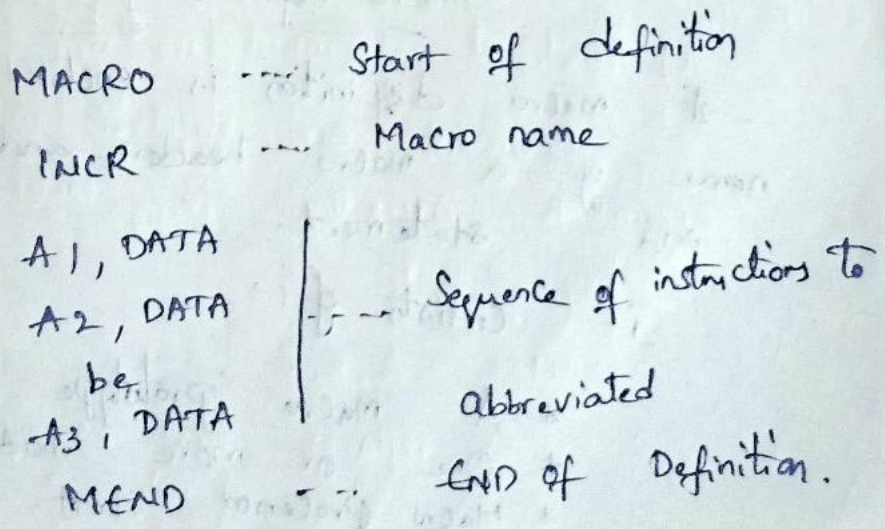 MACRO ---- Start of definition
INCR ---- Macro name
A1, DATA
A2, DATA ---- Sequence of instructions to
be
A3, DATA abbreviated
MEND - -- END of Definition.